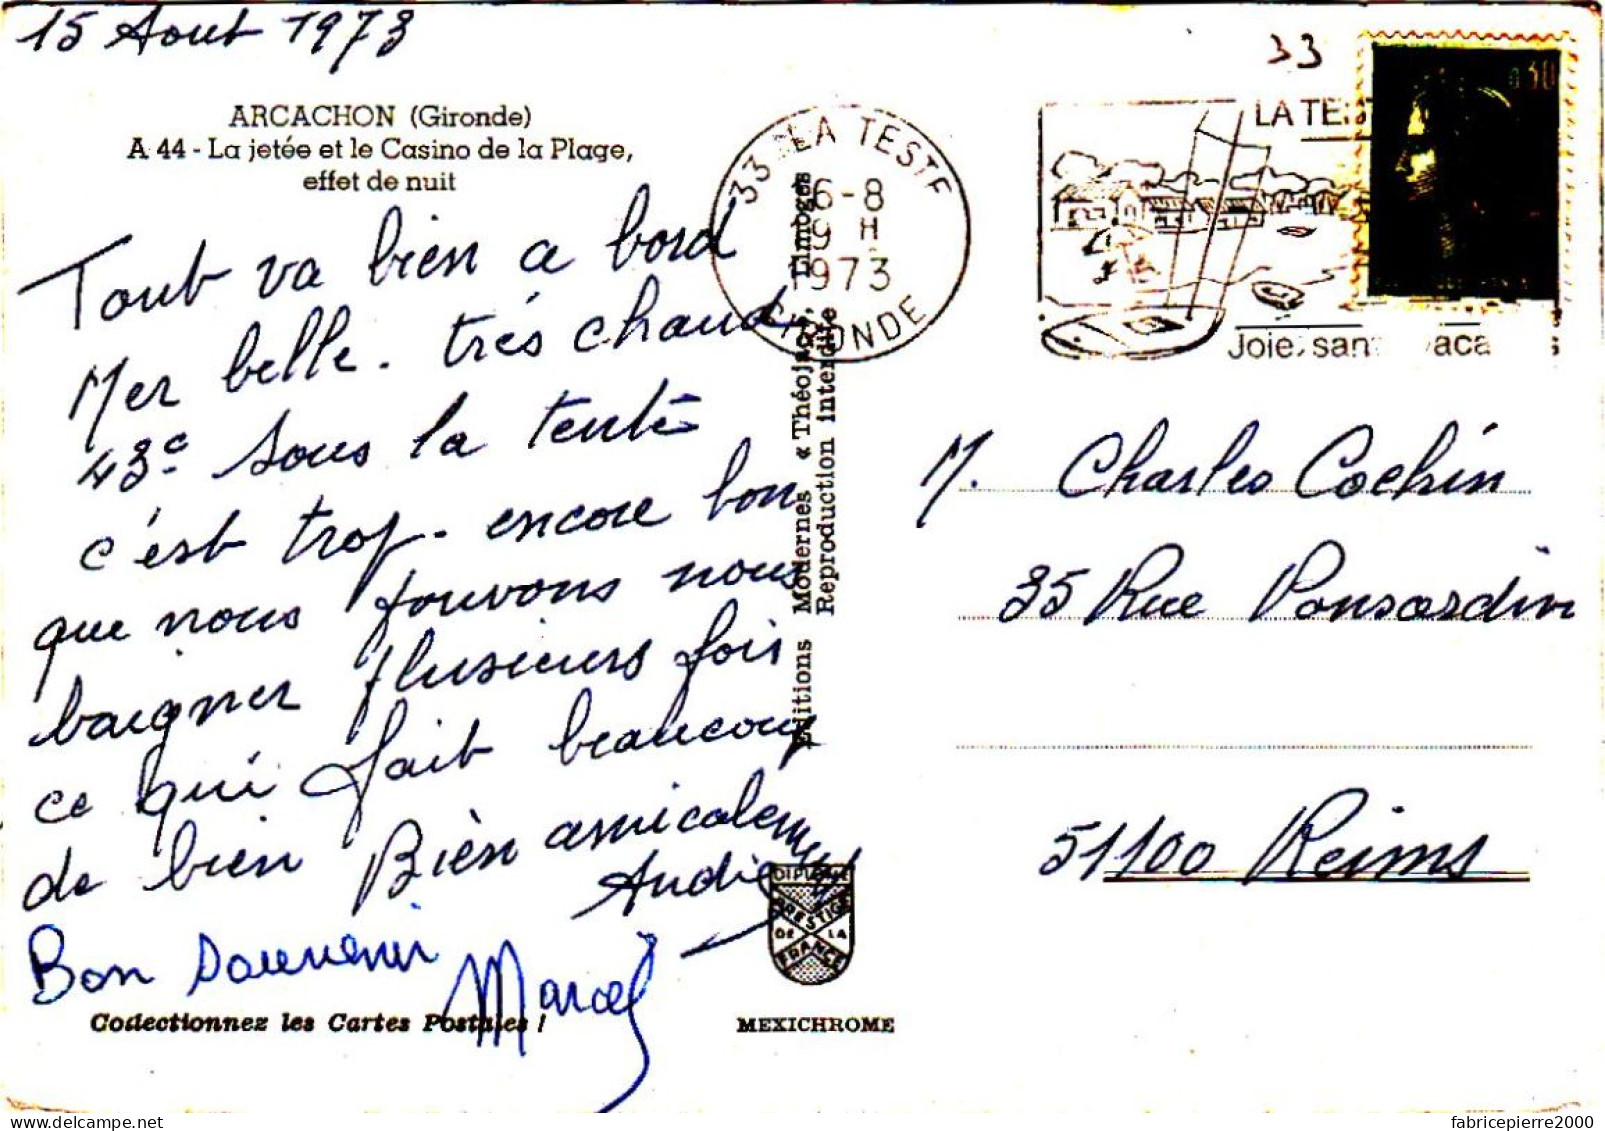 15 Aout 1973
33
ARCACHON (Gironde)
A 44 - La jetée et le Casino de la Plage,
effet de nuit
Tout va bien a bord
Mer belle. trés chaud
43° sous la tente
c'est trop. encore bon
que nous pouvons nous
baigner plusieurs fois
ce qui fait beaucoup
de bien Bien amicalement
Bon souvenir
Marcel
Collectionnez les Cartes Postales !
Editions Modernes « Théojac », Limoges
Reproduction interdite
33 LA TESTE
6-8
9 H
1973
GIRONDE
LA TEST
0,30
Joie, san
M. Charles Cochin
35 Rue Ponsardin
51100 Reims
DIPLOME
PRESTIGE
DE LA
FRANCE
MEXICHROME
www.delcampe.net
fabricepierre2000